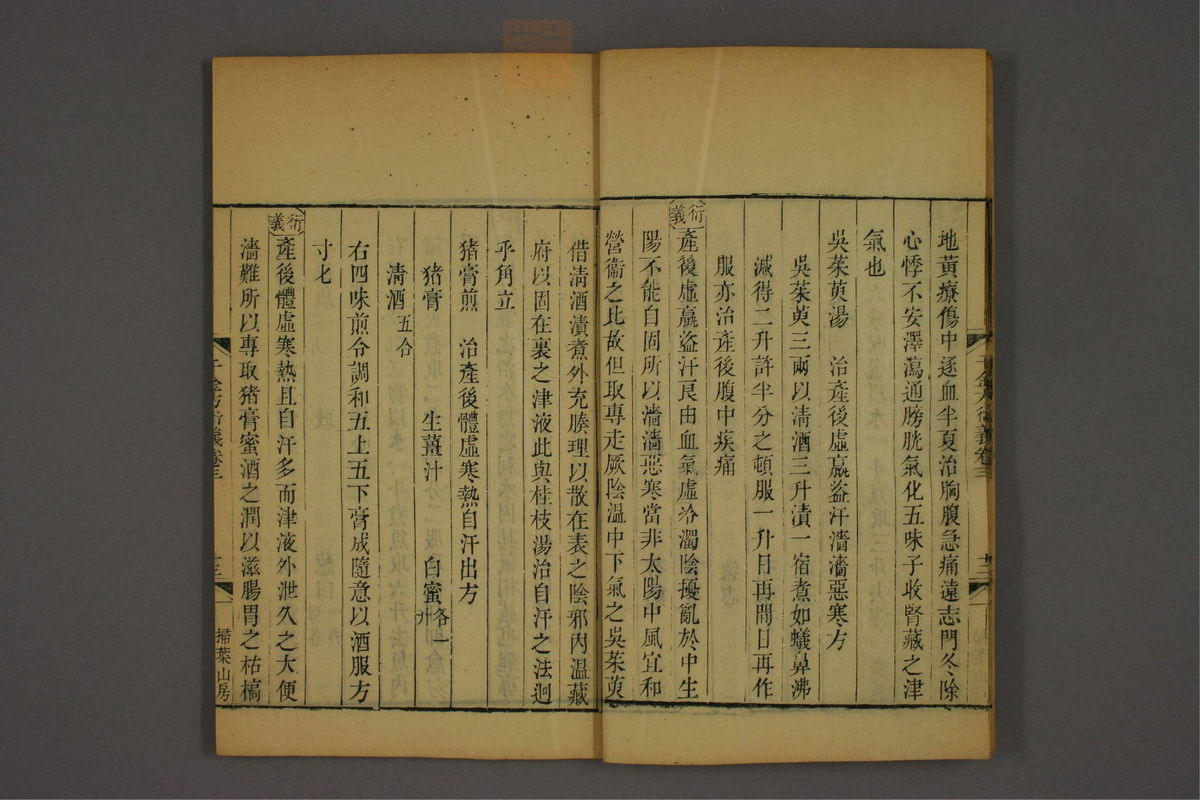 地黃療傷中逐血半夏治胸腹急痛遠志門冬除
心悸不安澤瀉通膀胱氣化五味子收腎藏之津
氣也
吳茱萸湯　治產後虛羸盜汗濇濇惡寒方
吳茱萸三兩以清酒三升漬一宿煮如蟻鼻沸
減得二升許半分之頓服一升日再間日再作
服亦治產後腹中疾痛
衍義產後虛羸盜汗艮由血氣虛冷濁陰擾亂於中生
陽不能自固所以濇濇惡寒當非太陽中風宜和
營衞之比故但取專走厥陰溫中下氣之吳茱萸
借清酒漬煮外充腠理以散在表之陰邪內溫藏
府以固在裏之津液此與桂枝湯治自汗之法迥
乎角立
猪膏煎　治產後體虛寒熱自汗出方
猪膏　生薑汁　白蜜各一升
清酒五合
右四味煎令調和五上五下膏成隨意以酒服方
寸匕
衍義產後體虛寒熱且自汗多而津液外泄久之大便
濇難所以專取猪膏蜜酒之潤以滋腸胃之枯槁
千金方衍義卷三
十三
掃葉山房